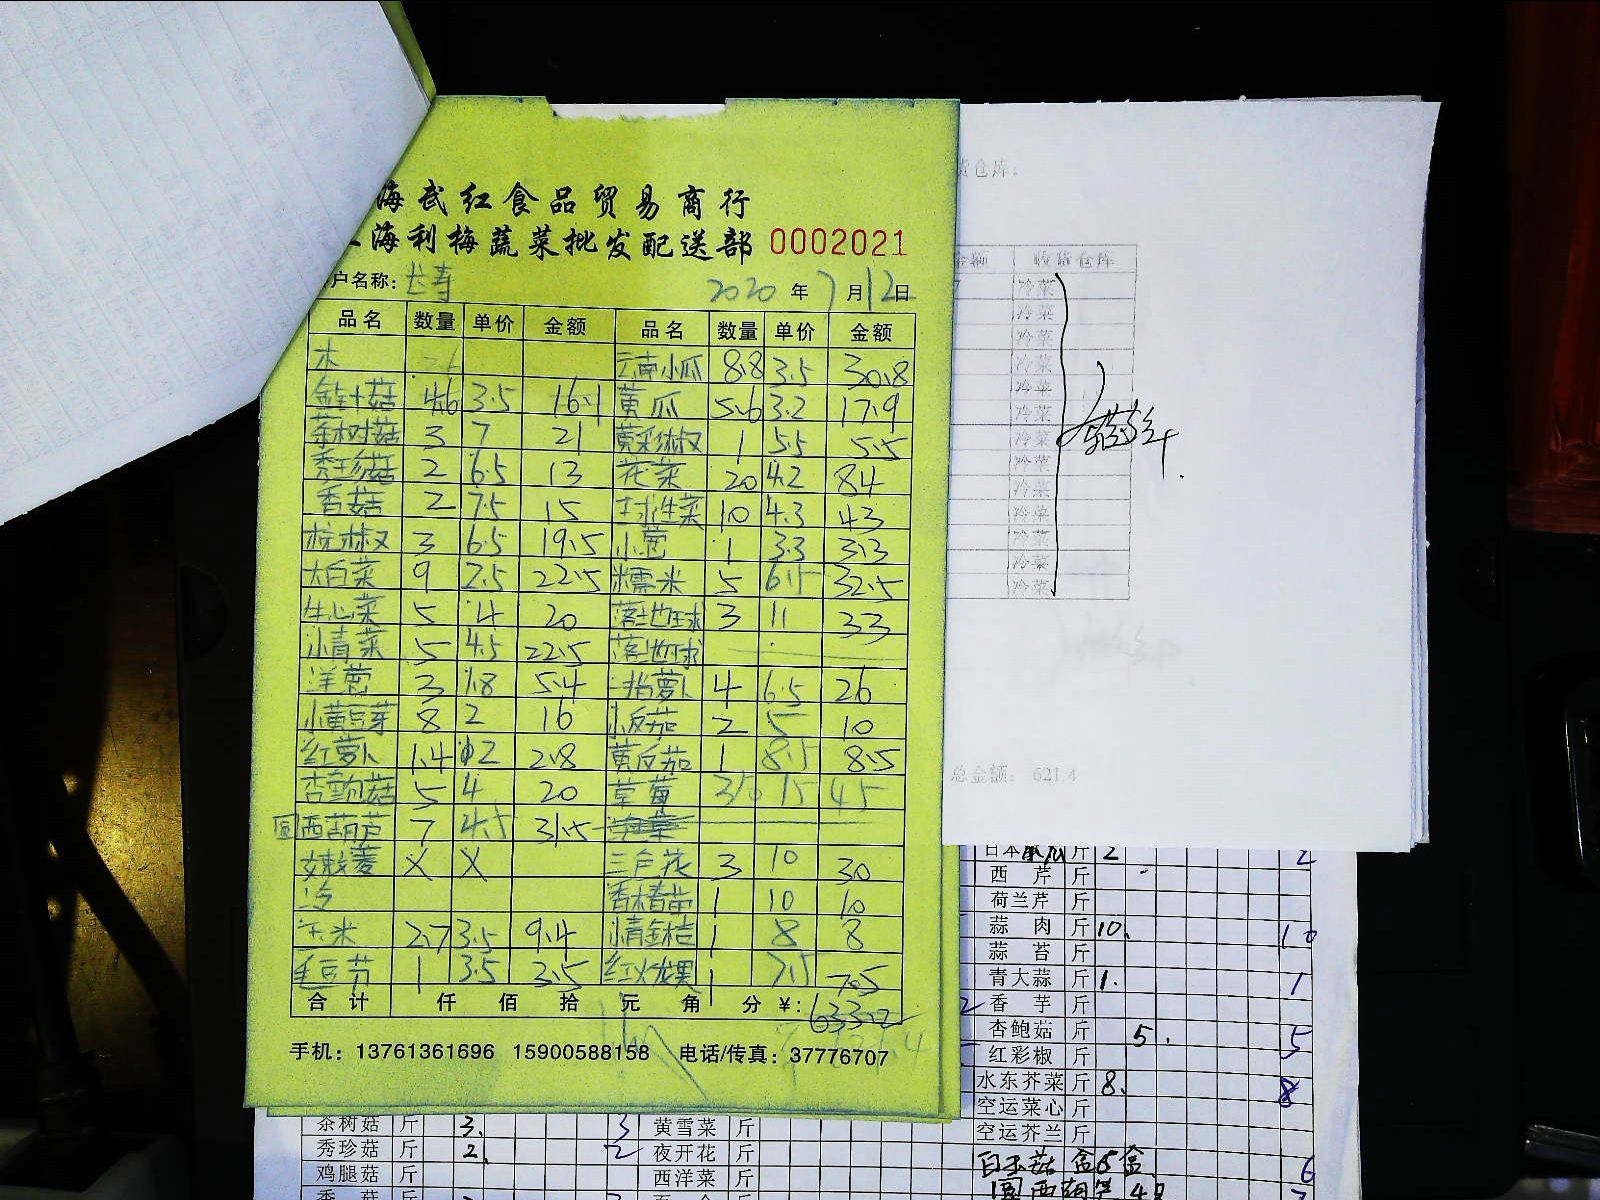 海武红食品贸易商行
海利梅蔬菜批发配送部 0002021
户名称: 长寿 2020 年 7 月 12 日
品名 数量 单价 金额 品名 数量 单价 金额
木 云南小瓜 8.8 3.5 30.8
金针菇 4.6 3.5 16.1 黄瓜 5.6 3.2 17.9
茶树菇 3 7 21 黄彩椒 1 5.5 5.5
秀珍菇 2 6.5 13 花菜 20 4.2 84
香菇 2 7.5 15 球生菜 10 4.3 43
杭椒 3 6.5 19.5 小葱 1 3.3 3.3
大白菜 9 2.5 22.5 糯米 5 6.5 32.5
牛心菜 5 4 20 落地球 3 11 33
小青菜 5 4.5 22.5 落地球
洋葱 3 1.8 5.4 萝卜 4 6.5 26
小黄豆芽 8 2 16 小反茄 2 5 10
红萝卜 1.4 2 2.8 黄反茄 1 8.5 8.5
杏鲍菇 5 4 20 草莓 3/ 15 45
圆西葫芦 7 4.5 31.5
嫩姜 X X 三色花 3 10 30
冷 香椿苗 1 10 10
玉米 2.7 3.5 9.4 小青金桔 1 8 8
毛豆节 1 3.5 3.5 红火龙果 1 7.5 7.5
合计 仟 佰 拾 元 角 分 ¥: 633.2
手机: 13761361696 15900588158 电话/传真: 37776707
货仓库:
金额 收货仓库
冷菜
冷菜
冷菜
冷菜
冷菜
冷菜
冷菜
冷菜
冷菜
冷菜
冷菜
冷菜
冷菜
总金额: 621.4
日本 斤 2 2
西芹 斤
荷兰芹 斤
蒜肉 斤 10. 10
蒜苔 斤
青大蒜 斤 1. 1
香芋 斤
杏鲍菇 斤 5. 5
红彩椒 斤
水东芥菜 斤 8. 8
空运菜心 斤
空运芥兰 斤
白玉菇 盒 5盒 6
圆西葫芦 4
茶树菇 斤 3. 3 黄雪菜 斤
秀珍菇 斤 2. 2 夜开花 斤
鸡腿菇 斤 西洋菜 斤